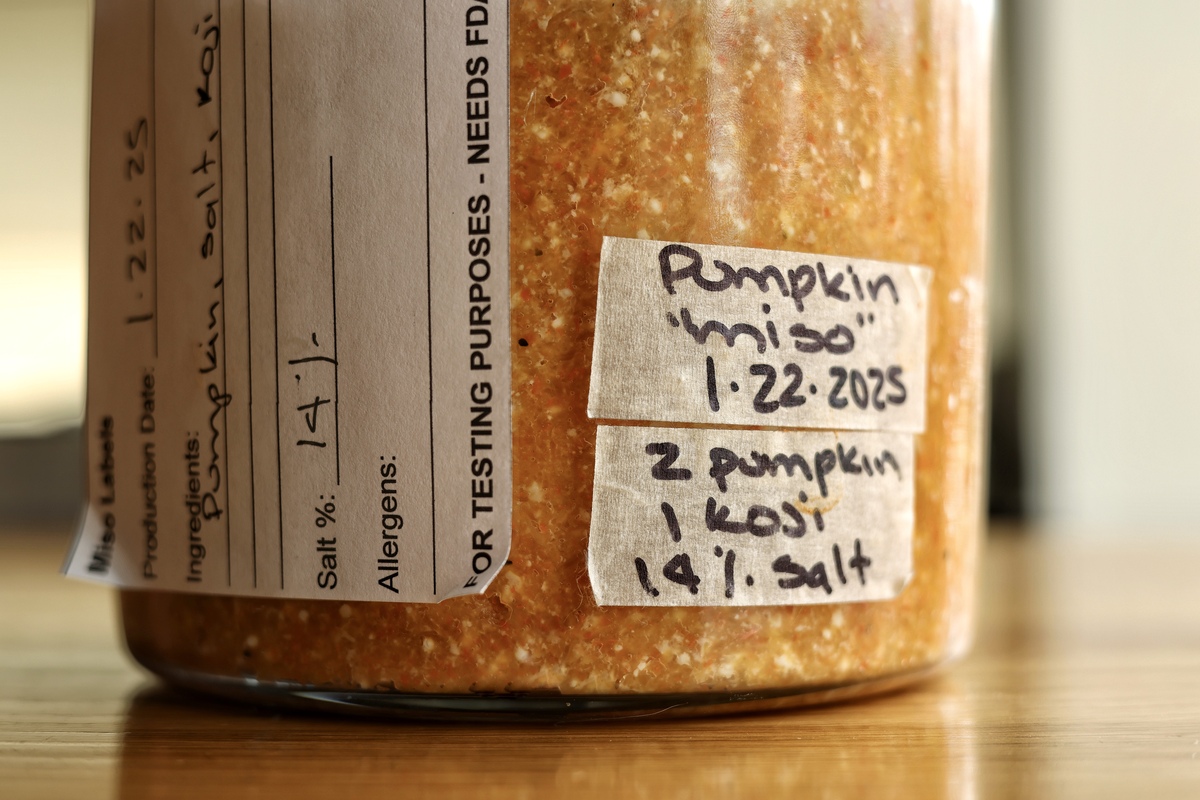 Miso Labels
Production Date: 1.22.25
Ingredients:
Pumpkin, salt, Koji
Salt %: 14%
Allergens:
FOR TESTING PURPOSES - NEEDS FDA
Pumpkin
"miso"
1.22.2025
2 pumpkin
1 koji
14% salt